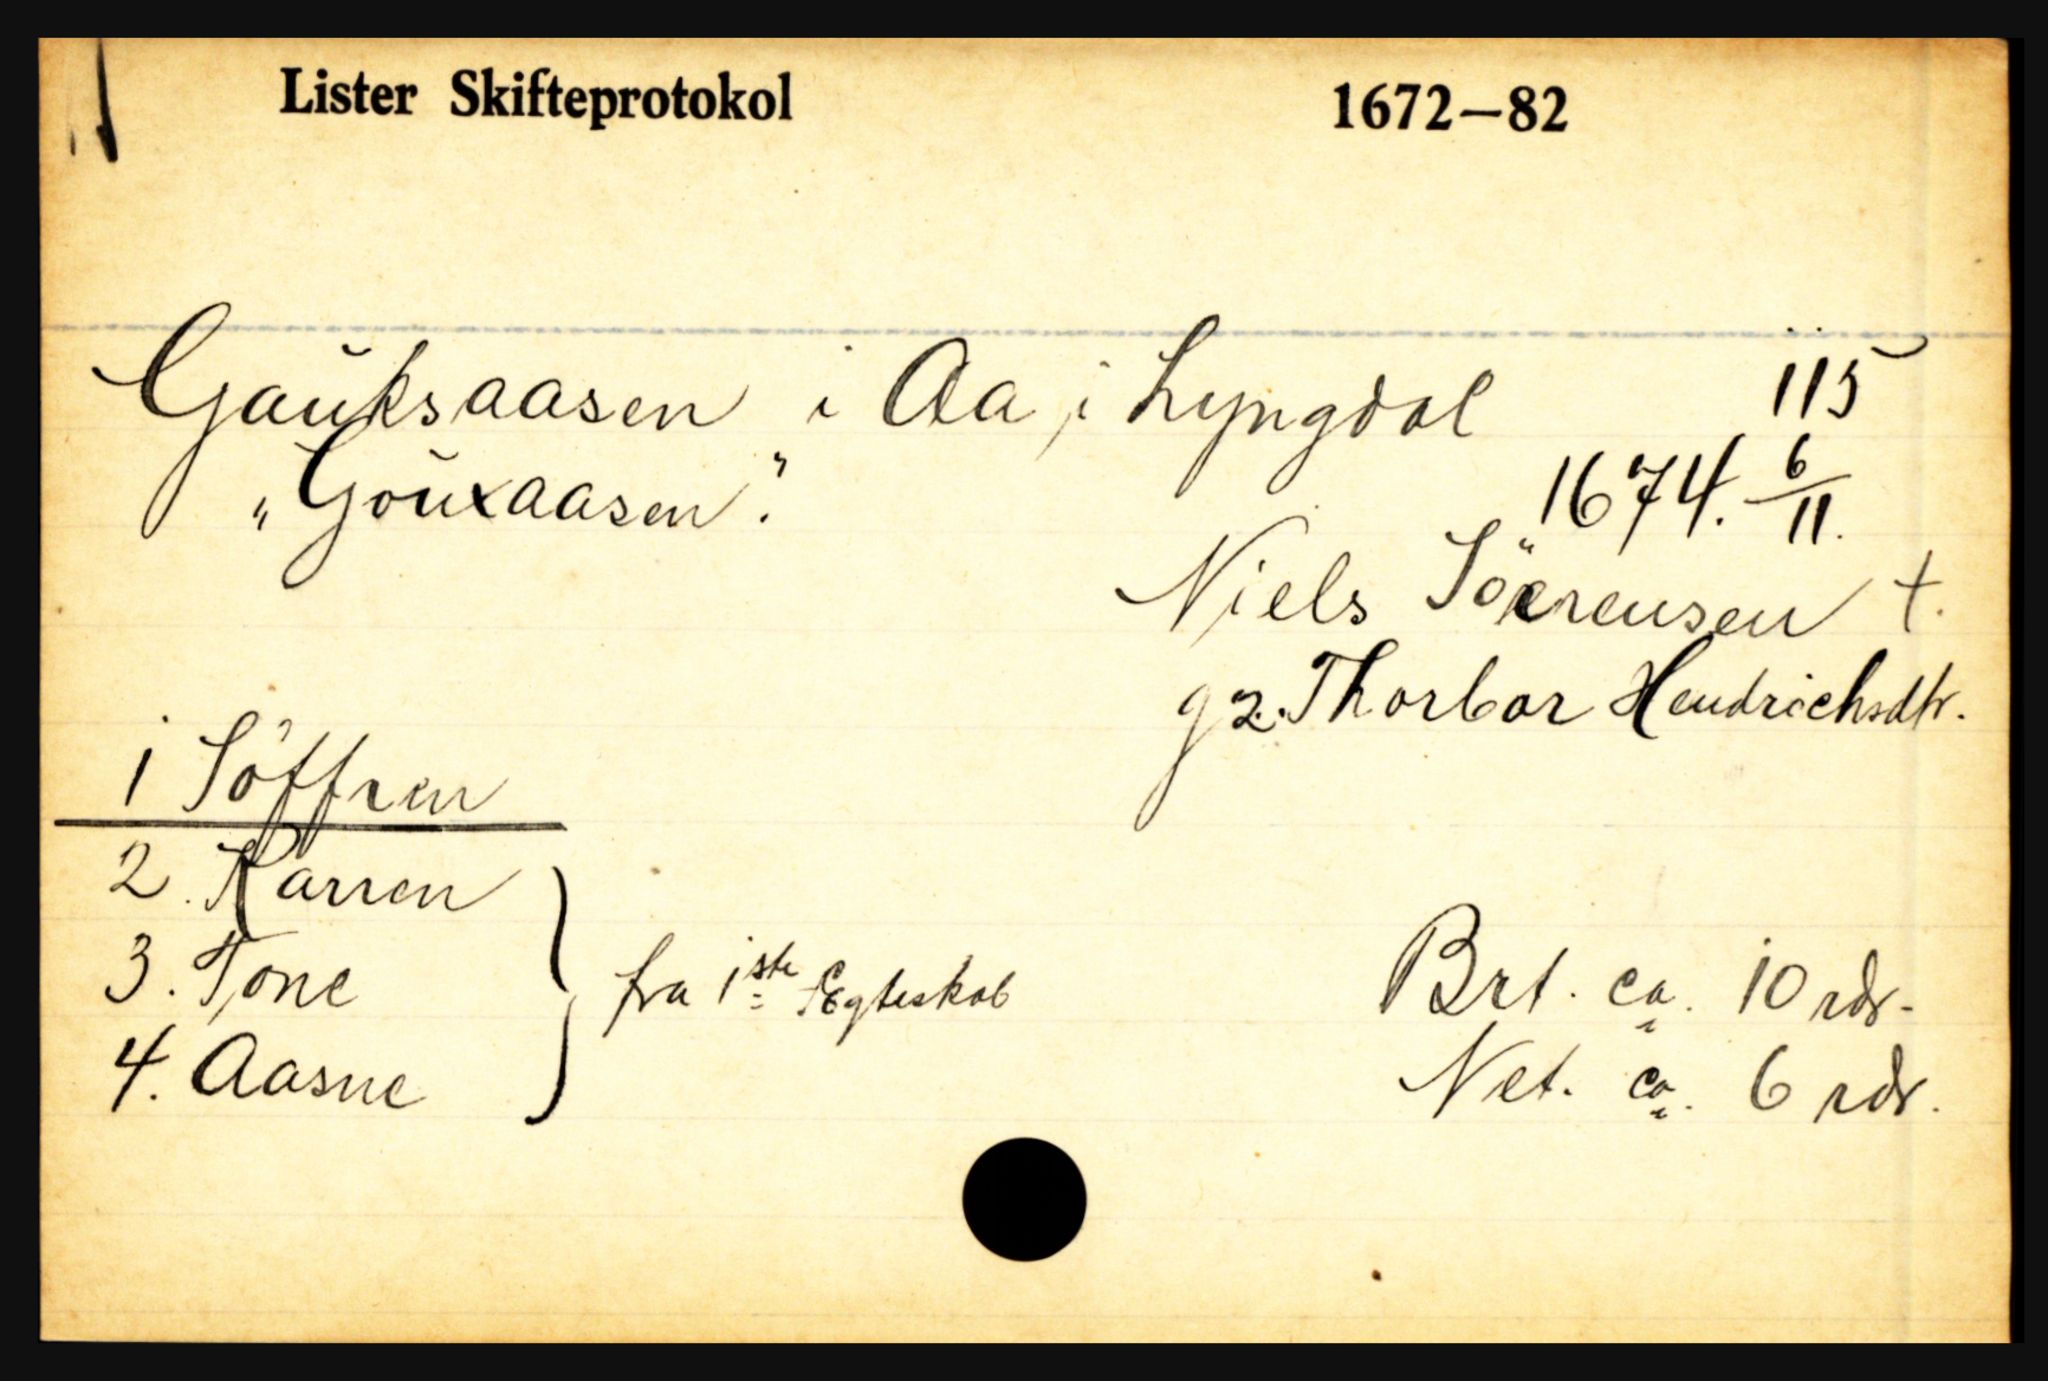 Lister Skifteprotokol 1672—82
Gauksaasen i Aa i Lyngdal 115
„Gouxaasen".
1674. 6/11.
Niels Söerensen †.
g 2. Thorbor Hendrichsdtr.
1 Söffren
2. Karren
3. Tone
4. Aasne
fra 1ste Egteskab
Brt. ca. 10 rdr.
Net. ca. 6 rdr.